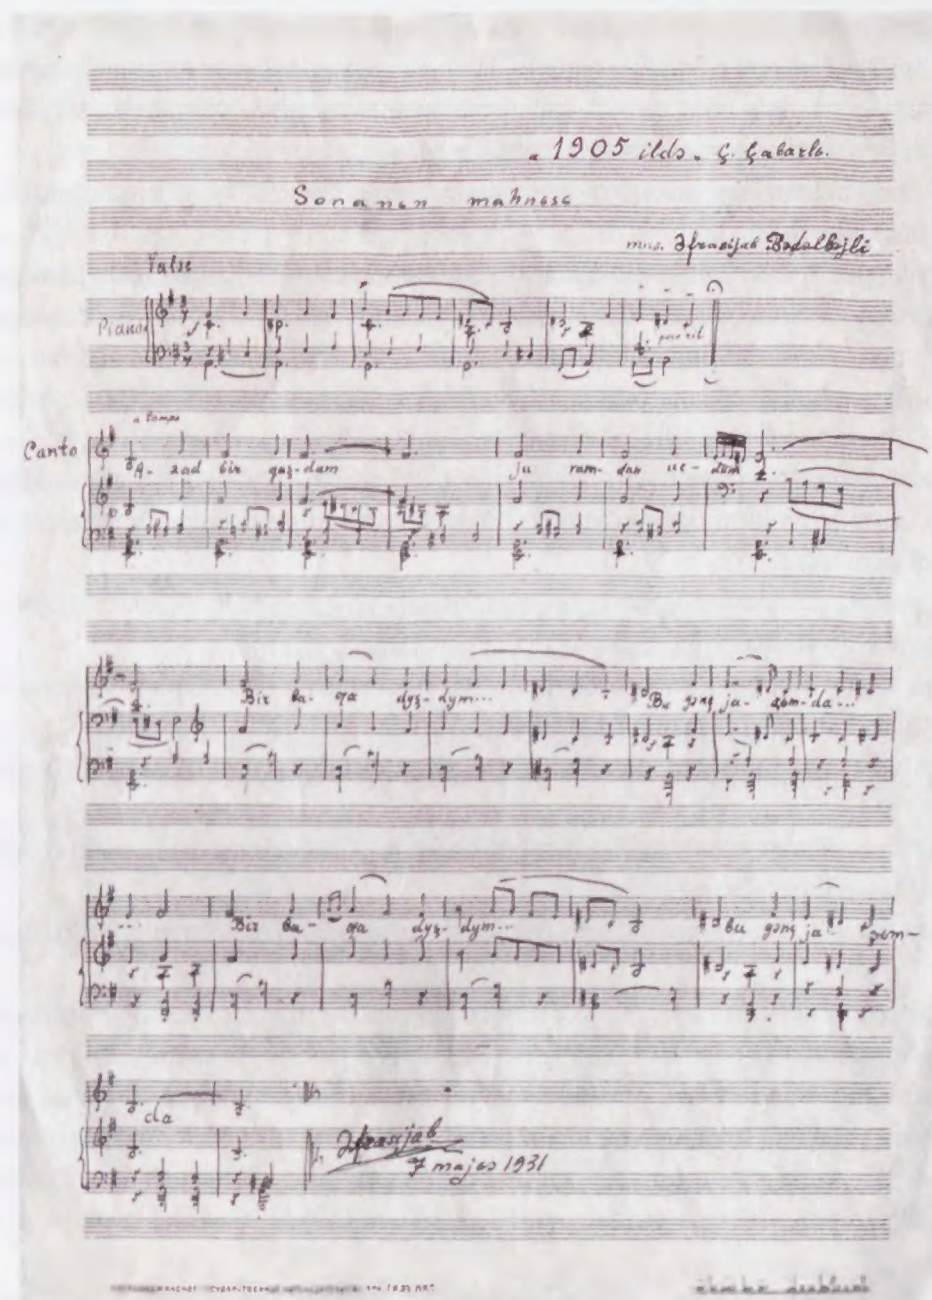 „1905 ildə„ Ç. Çabarlь.
Sonanьn mahnьsь
mus. Əfrasijab Bədəlbəjli
Valse
Piano
poco rit
a tempo
Canto
A- zad bir quş-dum ju vam-dan uc- dum
Bir ba- ƣa dyş- dym... Bu gənç ja- şьm-da...
Bir ba- ƣa dyş- dym... bu gənç ja- şьm-
da
Əfrasijab
7 majьs 1931